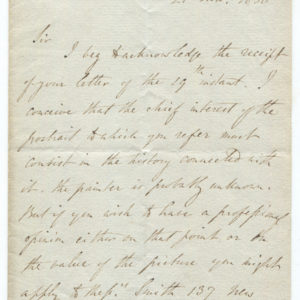 Sir
I beg to acknowledge the receipt
of your letter of the 19th instant. I
conceive that the chief interest of the
portrait to which you refer must
consist in the history connected with
it. the painter is probably unknown.
But if you wish to have a professional
opinion either on that point or on
the value of the picture you might
apply to Messrs Smith 137 New